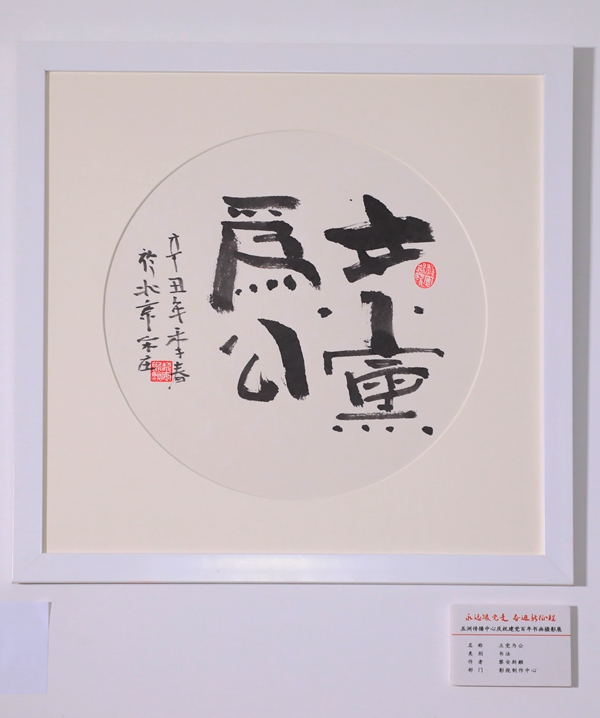 立黨
爲公
辛丑年季春
於北京宋庄
永远跟党走 奋进新征程
五洲传播中心庆祝建党百年书画摄影展
名 称 立党为公
类 别 书法
作 者 黎安新麒
部 门 影视制作中心